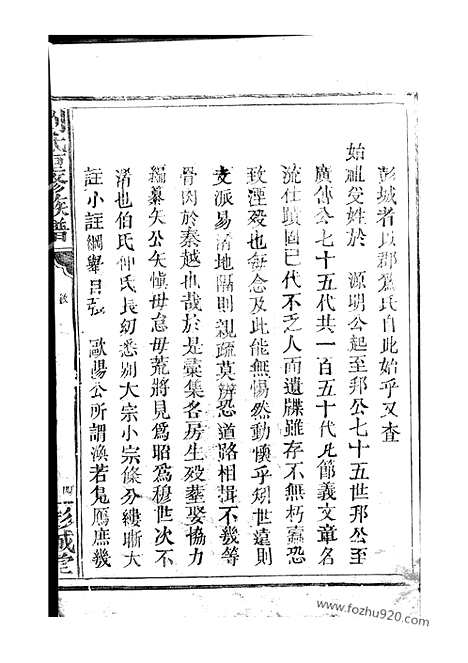 彭城者以郡為氏自此始乎又查
始祖受姓於 源明公起至邦公七十五世邦公至
廣傳公七十五代共一百五十代凡節義文章名
流仕蹟固已代不乏人而遺牒雖存不無朽蠹恐
致湮歿也每念及此能無惕然動懷乎矧世遠則
支派易淆地隔則親疏莫辨恐道路相揖不幾等
骨肉於秦越也哉於是彙集各房生歿塟娶協力
編纂矢公矢慎毋怠毋荒將見為昭為穆世次不
淆也伯氏仲氏長幼悉別大宗小宗條分縷晰大
註小註綱舉目張 歐陽公所謂渙若鳧鴈庶幾
劉氏重修族譜
四
彭城堂
www.fozhu920.com